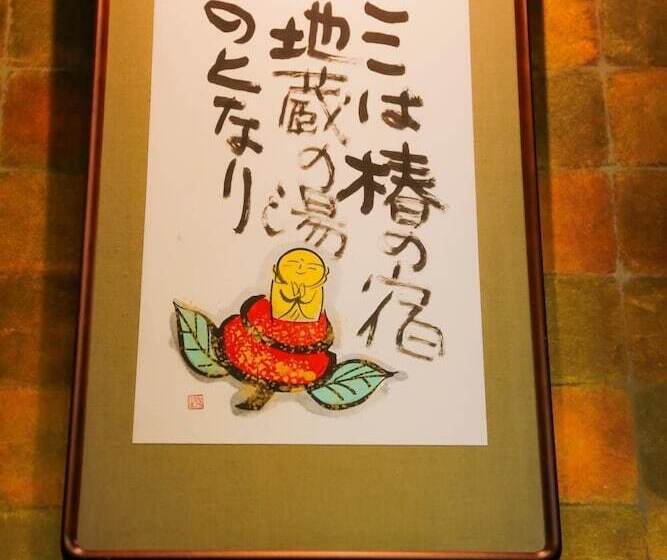 こは椿の宿
地蔵の湯
のとなり